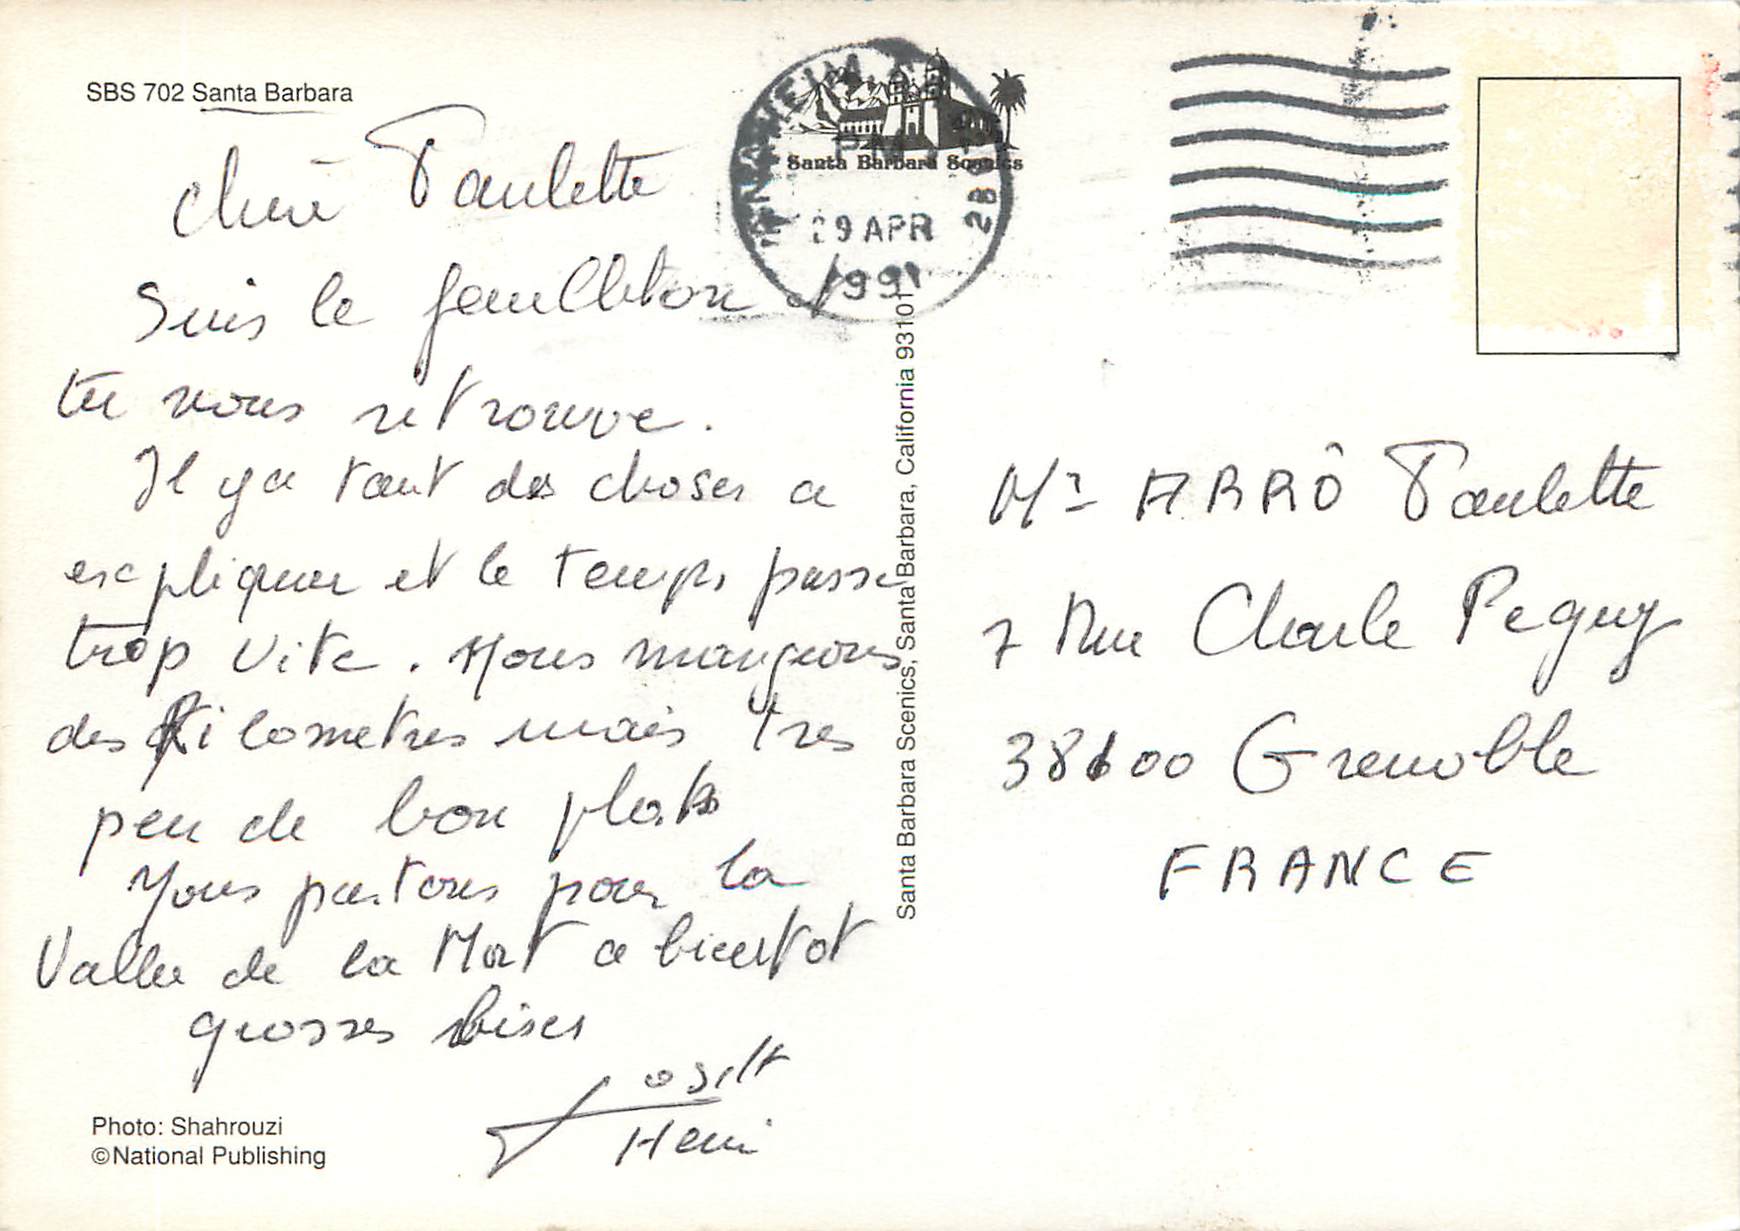 SBS 702 Santa Barbara
Santa Barbara Scenics
ANAHEIM, CA
PM
29 APR
1991
928
chere Paulette
Suis le feuilleton et
tu nous retrouve.
Il y a tant des choses a
expliquer et le temps passe
trop vite. Nous mangeons
des kilometres mais tres
peu de bon plats
Nous partons pour la
Vallee de la Mort a bientot
grosses bises
Josett
Henri
Photo: Shahrouzi
©National Publishing
Santa Barbara Scenics, Santa Barbara, California 93101
ARRÔ Paulette
7 Rue Charle Peguy
38100 Grenoble
FRANCE